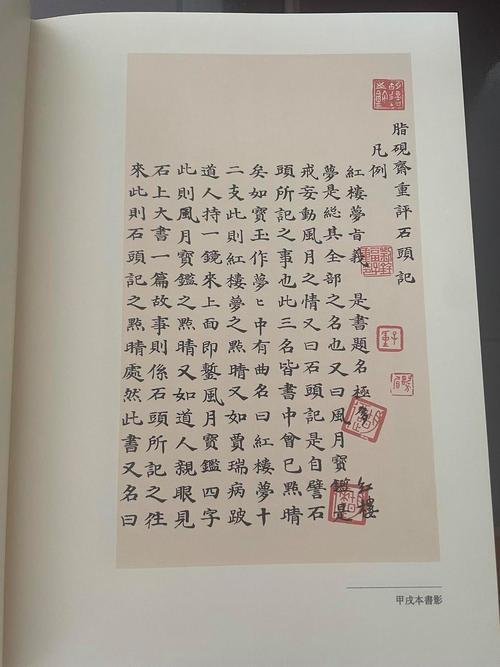 脂硯齋重評石頭記
凡例
紅樓夢旨義 是書題名極多 紅樓
夢是総其全部之名也又曰風月寶鑑是
戒妄動風月之情又曰石頭記是自譬石
頭所記之事也此三名皆書中曾已點睛
矣如寶玉作夢〻中有曲名曰紅樓夢十
二支此則紅樓夢之點睛又如賈瑞病跛
道人持一鏡來上面即鏨風月寶鑑四字
此則風月寶鑑之點睛又如道人親眼見
石上大書一篇故事則係石頭所記之往
來此則石頭記之點睛處然此書又名曰
甲戌本書影